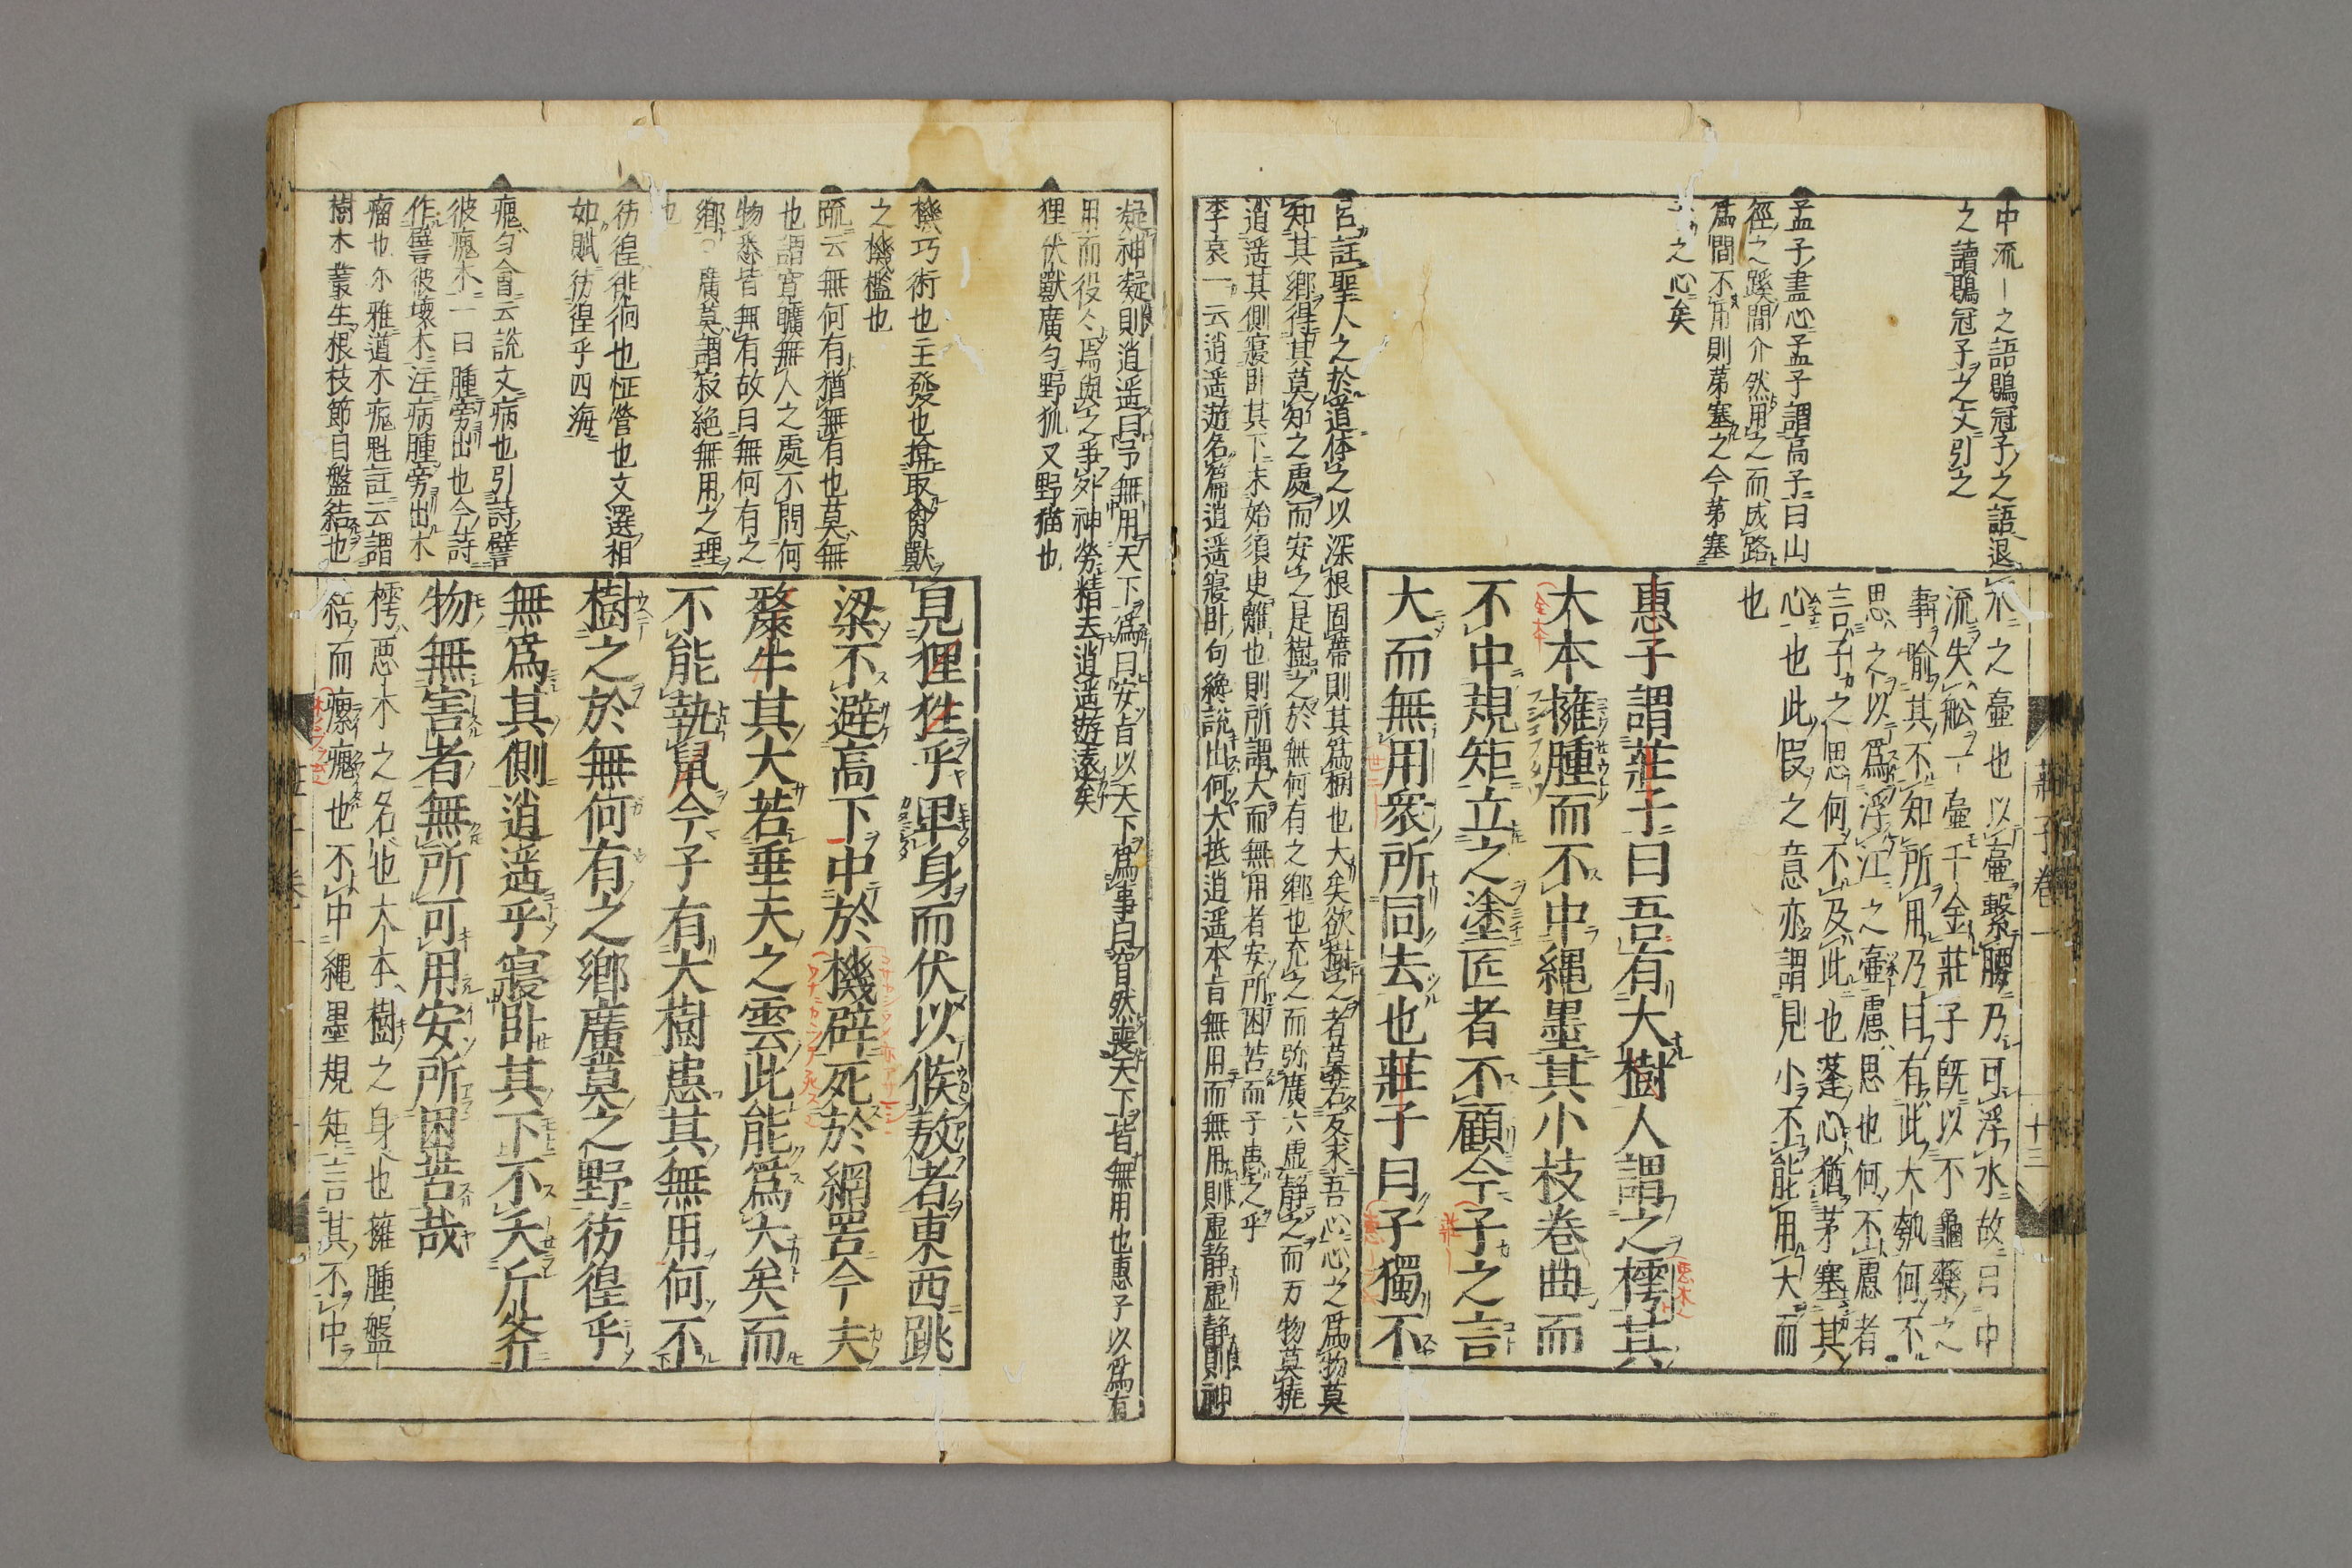 中流一之語鶡冠子之語退
之讀鶡冠子之文引之
孟子盡心孟子謂高子曰山
徑之蹊間介然用之而成路
爲間不用則茅塞之今茅塞
之心矣
呂註聖人之於道体之以深根固蔕則其爲柄也大矣欲樹之者莫若反求吾心心之爲物莫
知其鄉得其莫知之處而安之是樹之於無何有之鄉也充之而弥廣六虚静之而万物莫能
逍遥其側寢卧其下未始須臾離也則所謂大而無用者安所困苦而子患之乎
李哀一云逍遥遊名篇逍遥寢卧句纔說出何大抵逍遥本旨無用而無用則虚静虚静則神
不之壷也以壷繫腰乃可浮水故曰中
流失舩一壷千金莊子既以不龜藥之
事喻其不知所用乃曰有此大瓠何不
思之以爲浮江之壷慮思也何不慮者
言子之思何不及此也蓬心猶茅塞其
心也此段之意亦謂見小不能用大而
也
惠子謂莊子曰吾有大樹人謂之樗其
大本擁腫而不中繩墨其小枝卷曲而
不中規矩立之塗匠者不顧今子之言
大而無用衆所同去也莊子曰子獨不
莊子卷一
十三
凝神凝則逍遥曰予無用天下爲曰安旨以天下爲事曰窅然喪天下皆無用也惠子以爲有
用而役今爲與之爭外神勞精去逍遥遊遠矣
狸伏獸廣匀野狐又野猫也
機巧術也主發也揜取禽獸
之機檻也
疏云無何有猶無有也莫無
也謂寛曠無人之處不問何
物悉皆無有故曰無何有之
鄉 廣莫謂寂絶無用之理
也
彷徨徘徊也恇營也文選相
如賦彷徨乎四海
瘣匀會云說文病也引詩譬
彼瘣木一曰腫旁出也今詩
作譬彼壞木注病腫旁出木
瘤也尓雅道木瘣魁註云謂
樹木叢生根枝節目盤結也
見狸狌乎卑身而伏以候敖者東西跳
梁不避高下中於機辟死於網罟今夫
斄牛其大若垂天之雲此能爲大矣而
不能執鼠今子有大樹患其無用何不
樹之於無何有之鄉廣莫之野彷徨乎
無爲其側逍遥乎寢卧其下不夭斤斧
物無害者無所可用安所困苦哉
樗惡木之名也大本樹之身也擁腫盤
結而瘰瘣也不中繩墨規矩言其不中